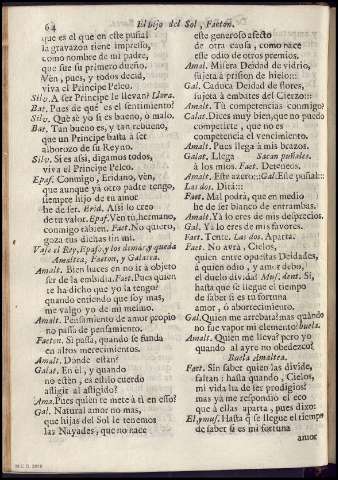 64
El hijo del Sol, Faeton.
que es el que en este puñal
la gravazon tiene impresso,
como nombre de mi padre,
que fue su primero dueño.
Ven, pues, y todos decid,
viva el Principe Peleo.
Silv. A ser Principe le llevan? Llora.
Bat. Pues de què es el sentimiento?
Silv. Què sè yo si es bueno, ò malo.
Bat. Tan bueno es, y tan rebueno,
que un Principe basta à ser
alborozo de su Reyno.
Silv. Si es assi, digamos todos,
viva el Principe Peleo.
Epaf. Conmigo, Eridano, ven,
que aunque yà otro padre tengo,
siempre hijo de tu amor
he de ser. Erid. Assi lo creo
de tu valor. Epaf. Ven tu, hermano,
conmigo tambien. Faet. No quiero,
goza tus dichas sin mi.
Vase el Rey, Epafo, y los demàs, y queda
Amaltea, Faeton, y Galatea.
Amalt. Bien haces en no ir à objeto
ser de la embidia. Faet. Pues quien
te ha dicho que yo la tengo?
quando entiendo que soy mas,
me valgo yo de mi mesmo.
Amalt. Pensamiento de amor propio
no passa de pensamiento.
Faeton. Si passa, quando se funda
en altos merecimientos.
Amalt. Dònde estàn?
Galat. En èl, y quando
no estèn, es estilo cuerdo
afligir al afligido?
Ama. Pues quien te mete à tì en esso?
Gal. Natural amor no mas,
que hijas del Sol le tenemos
las Nayades, que no nace
este generoso afecto
de otra causa, como nace
esse odio de otros premios.
Amal. Misera Deidad de vidrio,
sujeta à prision de hielo:::
Gal. Caduca Deidad de flores,
sujeta à embates del Cierzo:::
Amalt. Tù competencias conmigo?
Galat. Dices muy bien, que no puedo
competirte, que no es
competencia el vencimiento.
Amalt. Pues llega à mis brazos.
Galat. Llega Sacan puñales.
à los mios. Faet. Deteneos.
Amalt. Este azero::: Gal. Este puñal:::
Las dos. Dirà:::
Faet. Mal podrà, que en medio
he de ser blanco de entrambas.
Amalt. Yà lo eres de mis desprecios.
Gal. Yà lo eres de mis favores.
Faet. Tente. Las dos. Aparta.
Faet. No avrà, Cielos,
quien entre opuestas Deidades,
à quien odio, y amor debo,
el duelo divida? Mus. dent. Si,
hasta que se llegue el tiempo
de saber si es tu fortuna
amor, ò aborrecimiento.
Gal. Quien me arrebata? mas quàndo
no fue vapor mi elemento? buela.
Amalt. Quien me lleva? pero yo
quando al ayre no obedezco?
Buela Amaltea.
Faet. Sin saber quien las divide,
faltan: hasta quando, Cielos,
mi vida ha de ser prodigios?
mas yà me respondiò el eco
que à ellas aparta, pues dixo:
El, y mus. Hasta q̃ se llegue el tiempo
de saber si es mi fortuna
amor